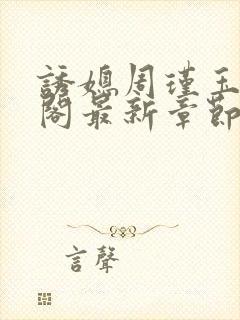 誘媳周瑾玉
閣最新章節
言聲